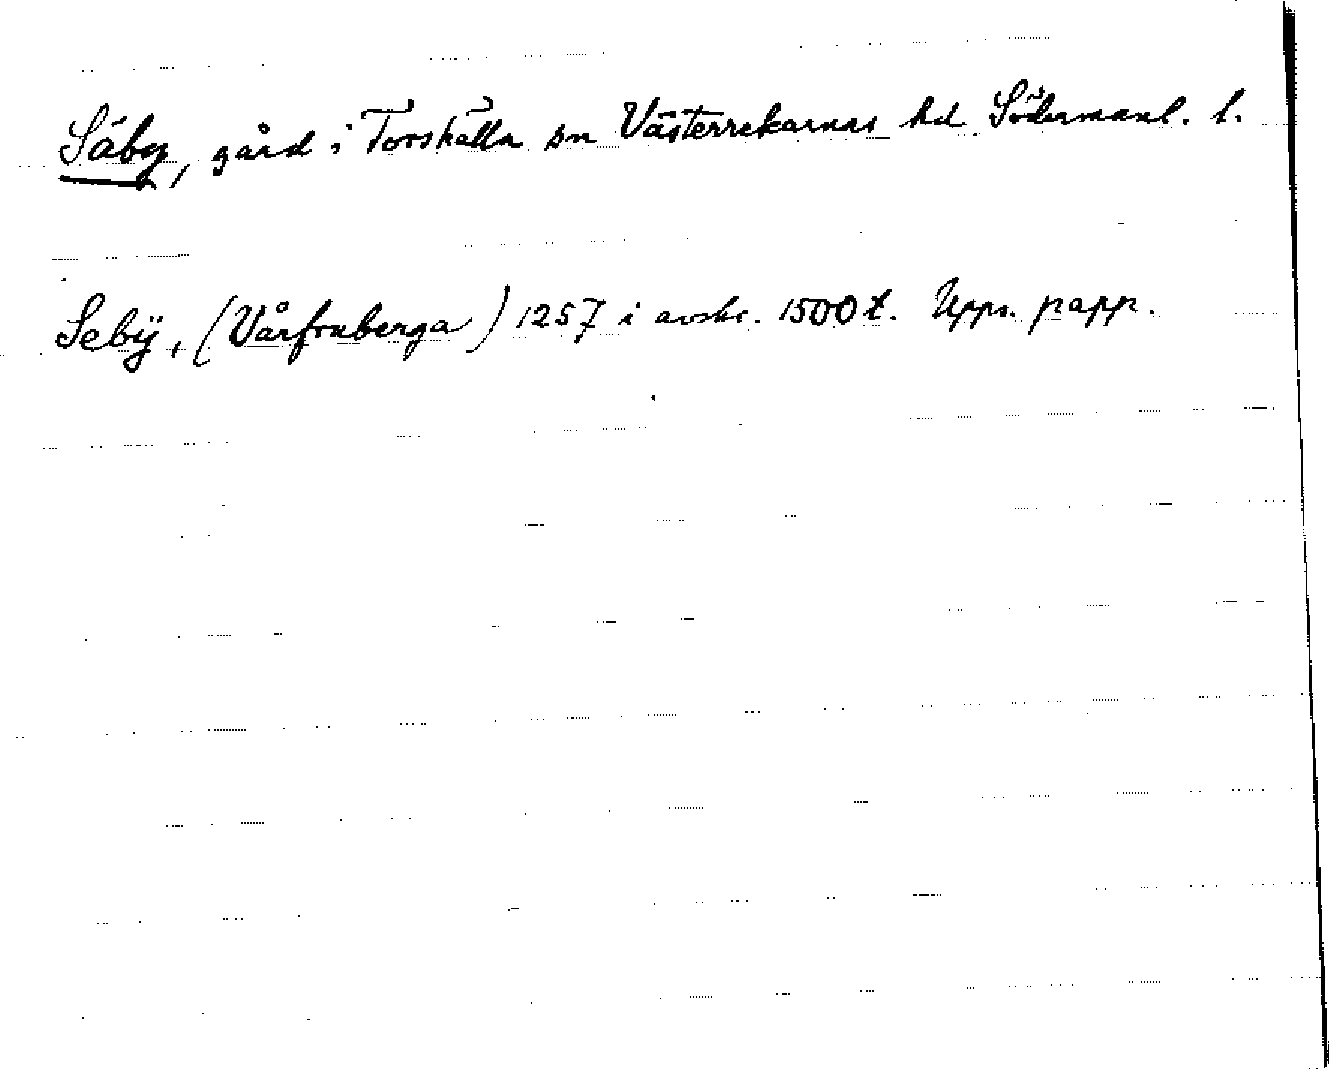 Säby, gård i Torshälla sn Västerrekarnas hd Södermanl. l.
Sebÿ, (Vårfruberga) 1257 i avskr. 1500 t. Upps. papp.